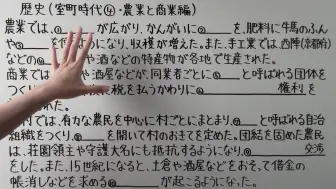 歴史(室町時代④・農業と商業編)
農業では、 が広がり、かんがいに を、肥料に牛馬のふん
や を使 ようになり、収穫が増えた。また、手工業では、西陣(京都府)
などの や酒などの特産物が各地で生産された。
商業では や酒屋などが、同業者ごとに と呼ばれる団体を
つくり 税を払うかわりに 権利を
村では、有力な農民を中心に村ごとにまとまり、 と呼ばれる自治
組織をつくり、 を開いて村のおきてを定めた。団結を固めた農民
は、荘園領主や守護大名にも抵抗するようになり、 交渉
をした。また、15世紀になると、土倉や酒屋などをおそって借金の
帳消しなどを求める が起こるようになった。